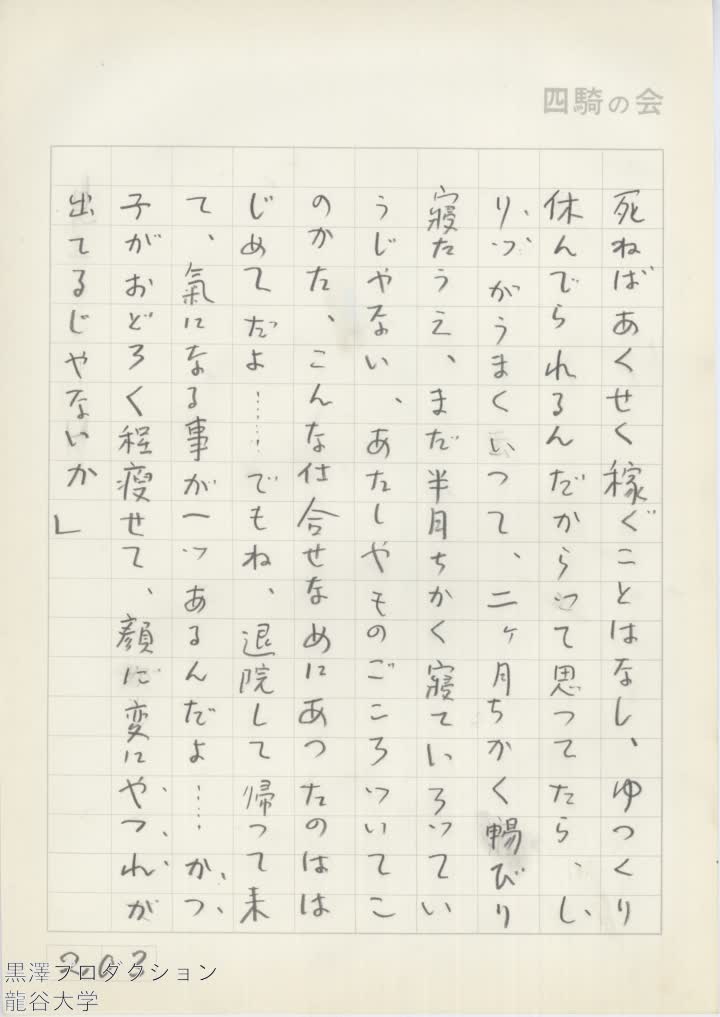 四騎の会
死ねばあくせく稼ぐことはなし、ゆつくり
休んでられるんだからツて思つてたら、し
り、ツがうまくいつて、二ヶ月ちかく暢びり
寝たうえ、まだ半月ちかく寝ていろツてい
うじやない、あたしやものごころツいてこ
のかた、こんな仕合せなめにあつたのはは
じめてだよ……でもね、退院して帰つて来
て、氣になる事が一ツあるんだよ……かつ
子がおどろく程瘦せて、顔に変にやつれが
出てるじやないか」
203
黒澤プロダクション
龍谷大学